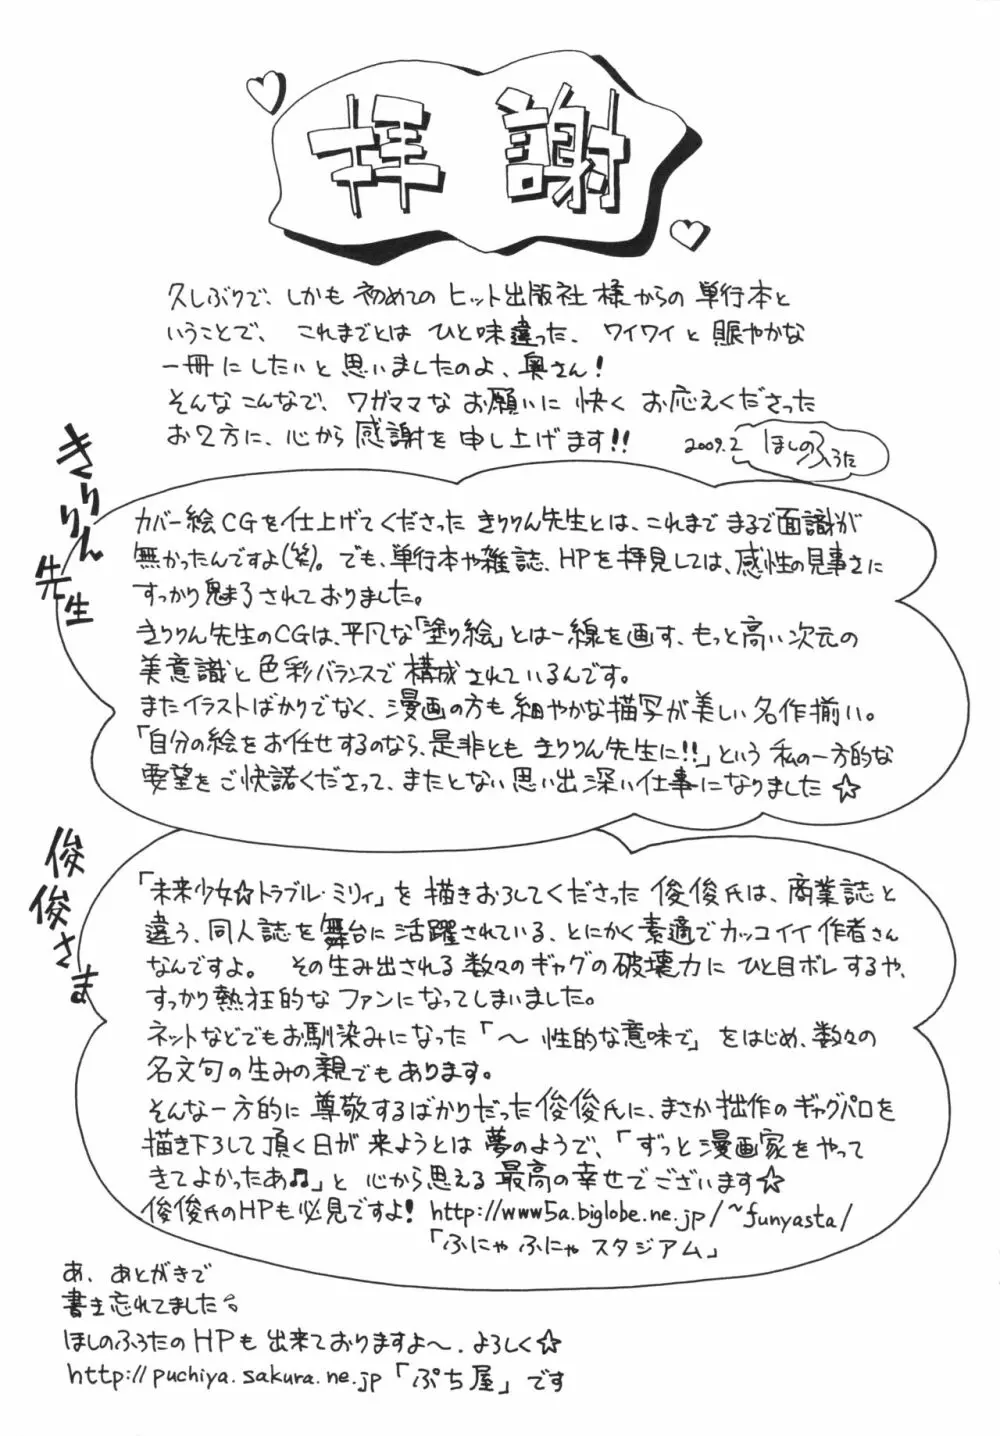 拝謝
久しぶりで、しかも初めてのヒット出版社様からの単行本と
いうことで、これまでとはひと味違った、ワイワイと賑やかな
一冊にしたいと思いましたのよ、奥さん!
そんなこんなで、ワガママなお願いに快くお応えくださった
お2方に、心から感謝を申し上げます!!
2009.2 ほしのふうた
きりりん先生
カバー絵CGを仕上げてくださったきりりん先生とは、これまでまるで面識が
無かったんですよ(笑)。でも、単行本や雑誌、HPを拝見しては、感性の見事さに
すっかり魅了されておりました。
きりりん先生のCGは、平凡な「塗り絵」とは一線を画す、もっと高い次元の
美意識と色彩バランスで構成されているんです。
またイラストばかりでなく、漫画の方も細やかな描写が美しい名作揃い。
「自分の絵をお任せするのなら、是非ともきりりん先生に!!」という私の一方的な
要望をご快諾くださって、またとない思い出深い仕事になりました☆
俊俊さま
「未来少女☆トラブル・ミリィ」を描きおろしてくださった俊俊氏は、商業誌と
違う、同人誌を舞台に活躍されている、とにかく素適でカッコイイ作者さん
なんですよ。その生み出される数々のギャグの破壊力にひと目ボレするや、
すっかり熱狂的なファンになってしまいました。
ネットなどでもお馴染みになった「〜性的な意味で」をはじめ、数々の
名文句の生みの親でもあります。
そんな一方的に尊敬するばかりだった俊俊氏に、まさか拙作のギャグパロを
描き下ろして頂く日が来ようとは夢のようで、「ずっと漫画家をやって
きてよかったあ♫」と心から思える最高の幸せでございます☆
俊俊氏のHPも必見ですよ! http://www5a.biglobe.ne.jp/~funyasta/
「ふにゃふにゃスタジアム」
あ、あとがきで
書き忘れてました
ほしのふうたのHPも出来ておりますよ〜、よろしく☆
http://puchiya.sakura.ne.jp「ぷち屋」です